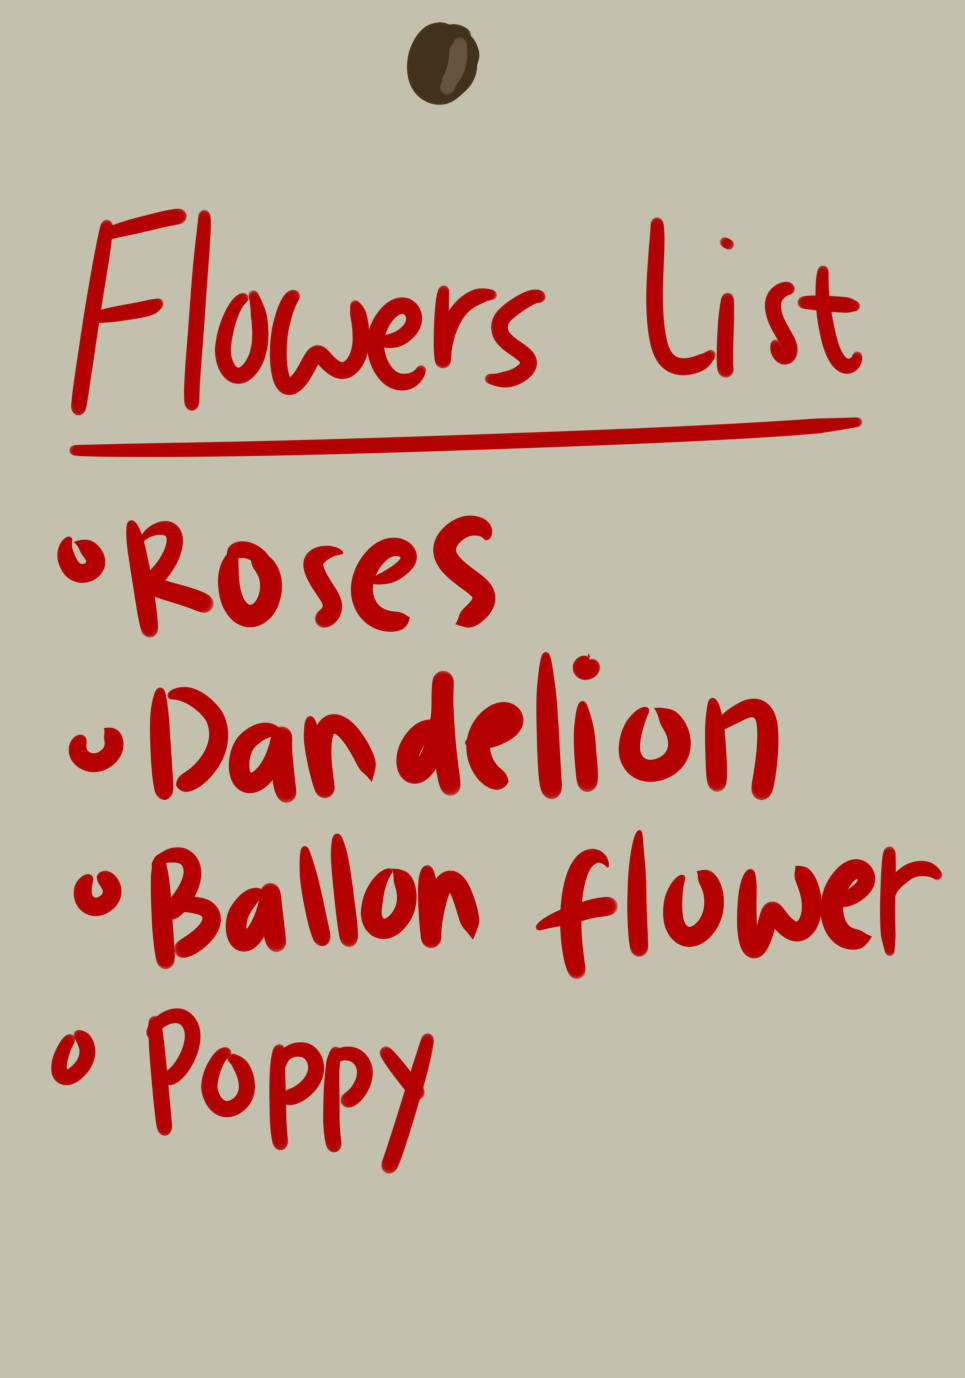 Flowers List
Roses
Dandelion
Ballon flower
Poppy